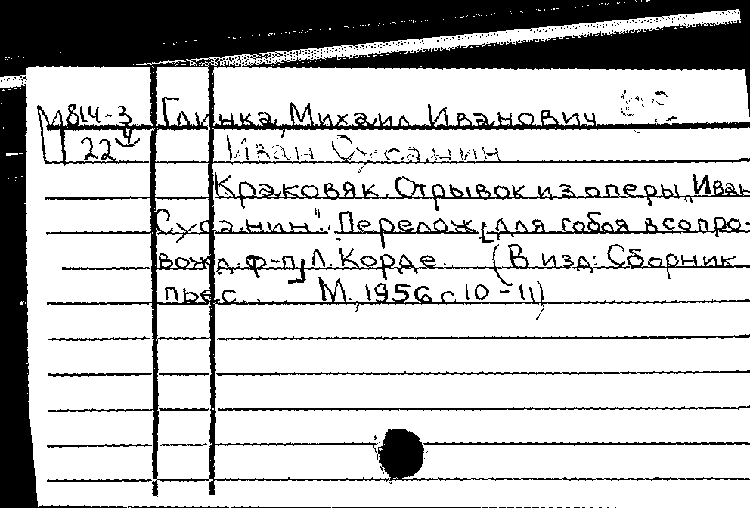 М814-3 Глинка, Михаил Иванович
22 Иван Сусанин
Краковяк. Отрывок из оперы „Иван
Сусанин". Перелож. для гобоя в сопро-
вожд. ф-п. Л. Корде. (В изд: Сборник
пьес. М., 1956 с 10-11)